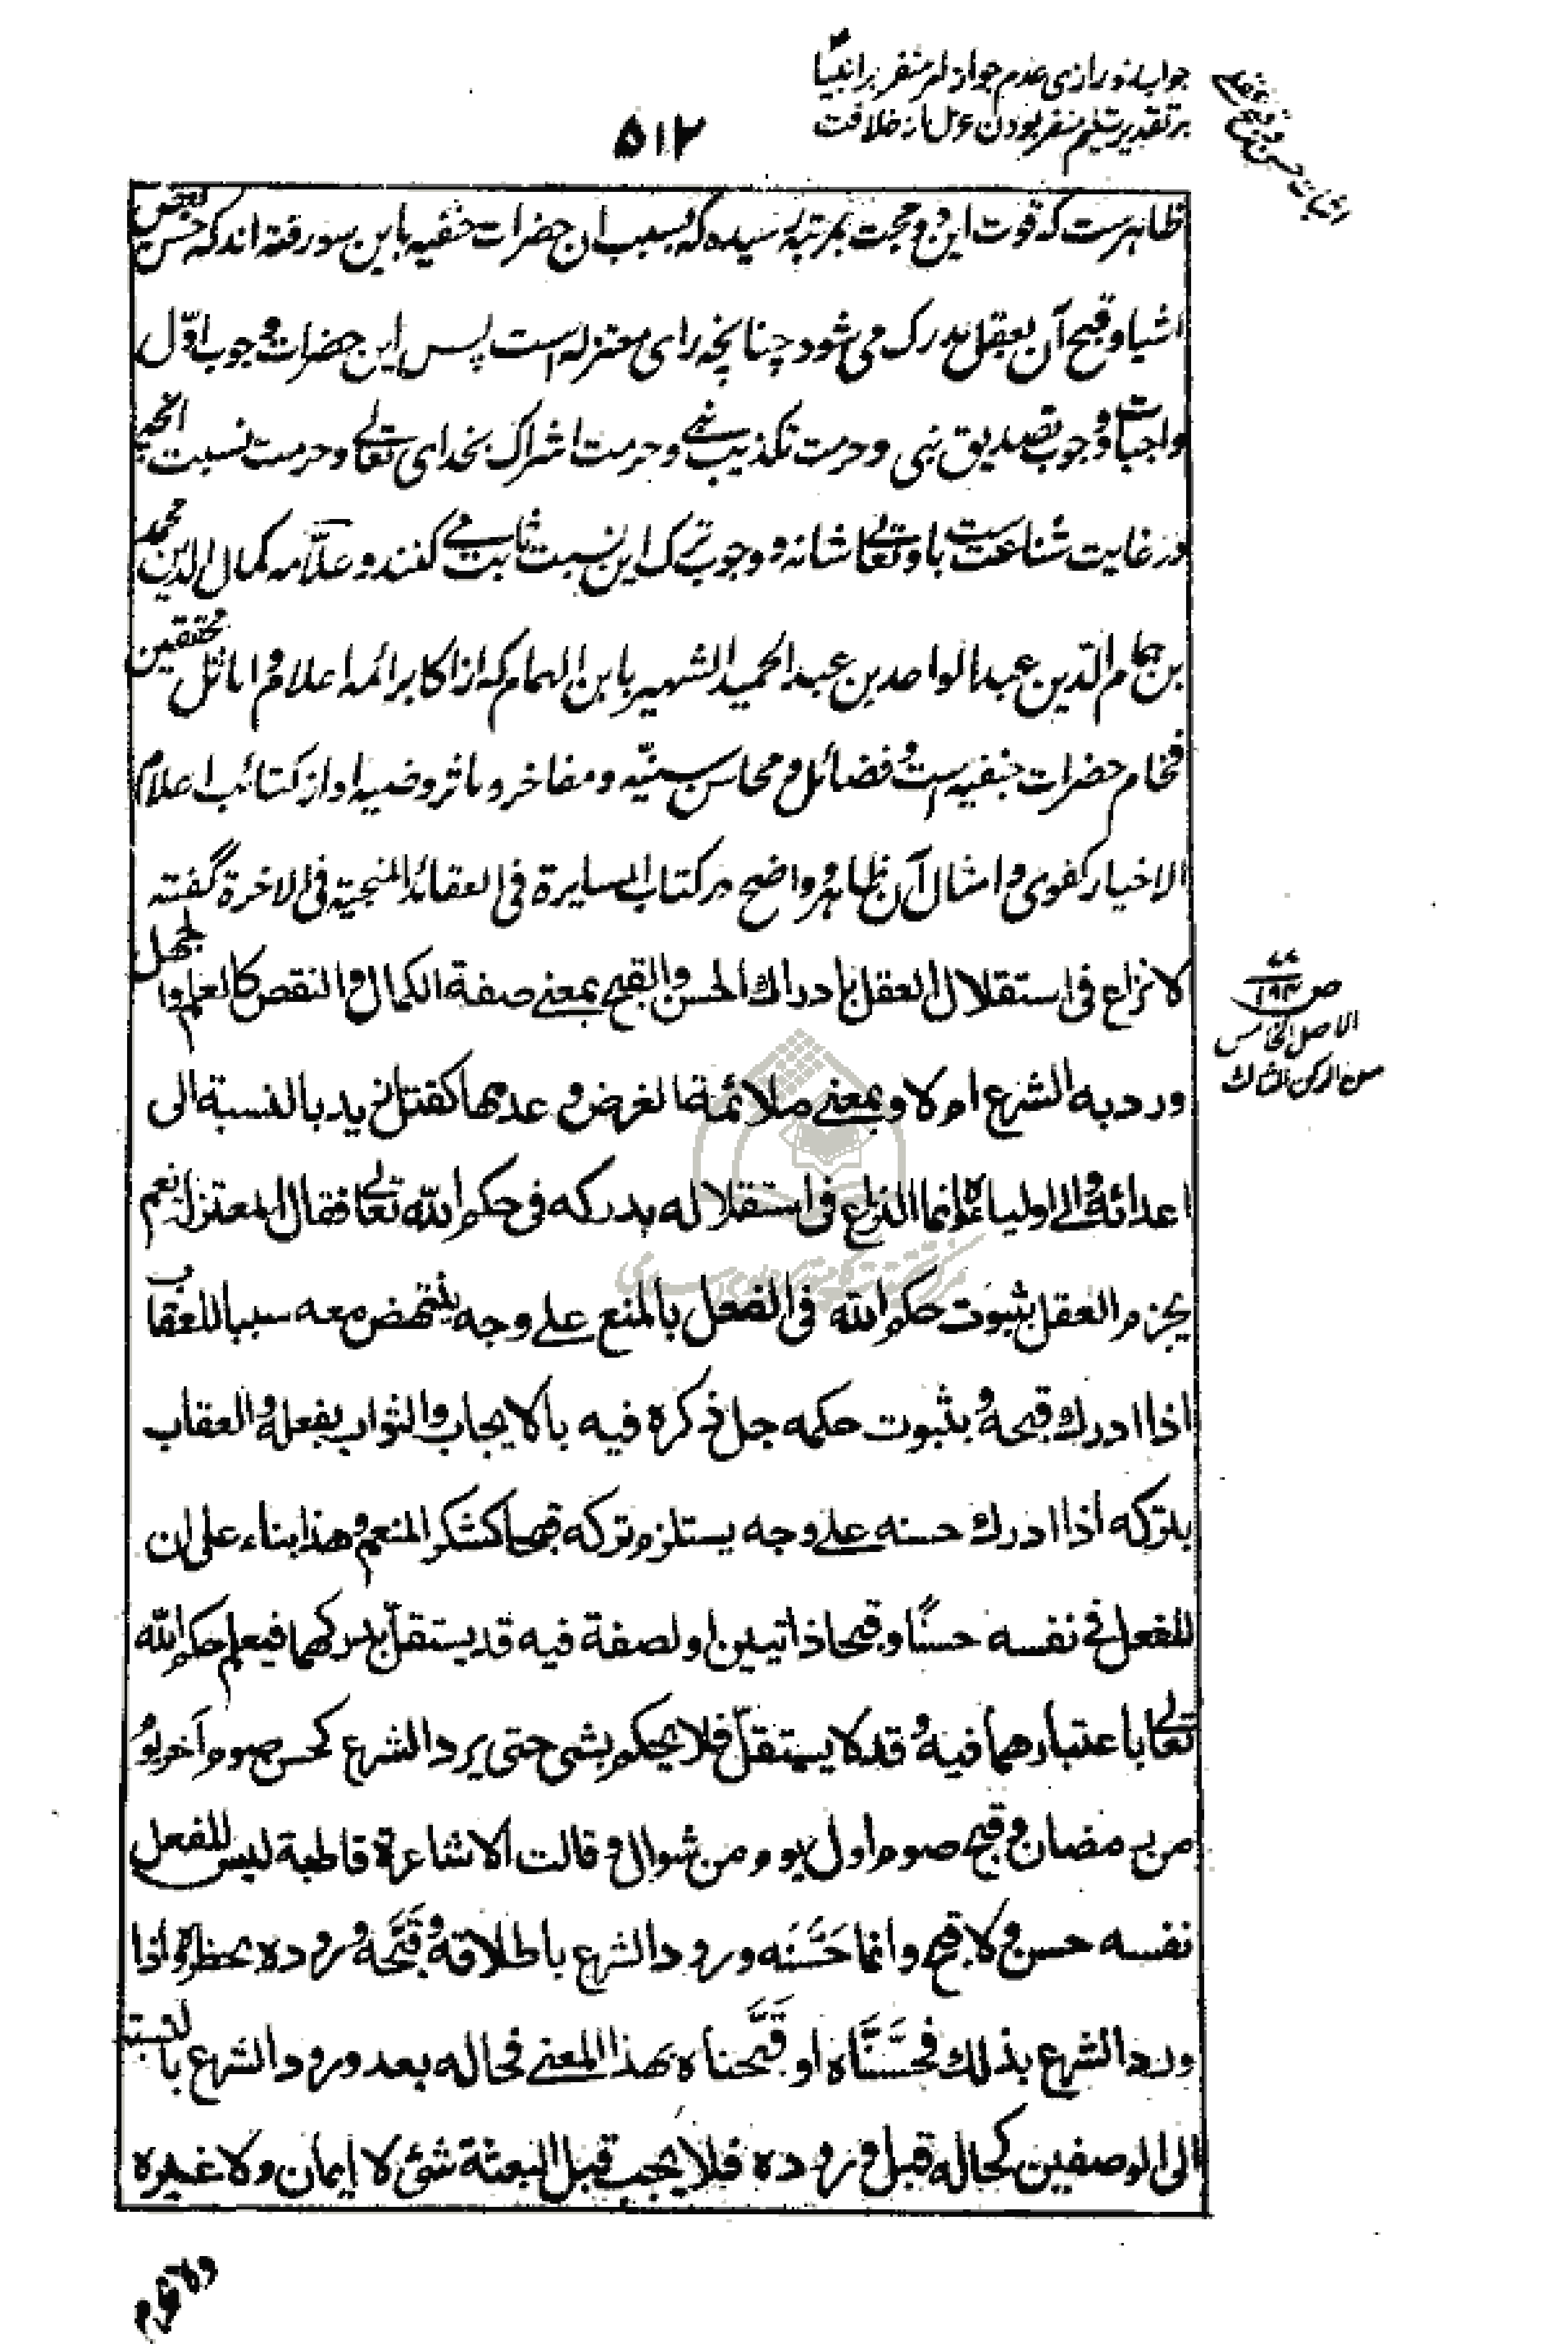 جواب فخر رازی عدم جواز امر منفر بر انبیا
بر تقدیر تسلیم منفر بودن عزل از خلافت
اثبات حسن و قبح عقلی
۵۱۲
ظاهرست که قوت این دو حجت بمرتبهٔ رسیده که بسبب آن حضرات حنفیه باین سو رفته‌اند که حسن بعض
اشیا و قبح آن بعقل مدرک می‌شود چنانچه رای معتزله است پس این حضرات وجوب اوّل
واجبات و وجوب تصدیق نبی و حرمت تکذیب نبی و حرمت اشراک بخدای تعالی و حرمت نسبت انچه
در غایت شناعت است باو تعالی شانه و وجوب ترک این نسبت ثابت می کنند و علّامه کمال الدین محمد
بن همام الدّین عبد الواحد بن عبد الحمید الشهیر بابن الهمام که از اکابر ائمه اعلام و اماثل محققین
فخام حضرات حنفیه است و فضائل و محاسن سنیّه و مفاخر و ماثر وضیه او از کتائب اعلام
الاخیار کفوی و امثال آن ظاهر و واضح در کتاب المسایرة فی العقائد المنجیة فی الاخرة گفته
لا نزاع فی استقلال العقل بادراک الحسن و القبح بمعنی صفة الکمال و النقص کالعلم و الجهل
ورد به الشرع ام لا و بمعنی ملائمة الغرض و عدمها کقتل زید بالنسبة الی
اعدائه و الی اولیائه و انما النزاع فی استقلاله بدرکه فی حکم الله تعالی فقال المعتزلة نعم
یجزم العقل بثبوت حکم الله فی الفعل بالمنع علی وجه ینتهض معه سببا للعقاب
اذا ادرک قبحه و بثبوت حکمه جل ذکره فیه بالایجاب و الثواب بفعله و العقاب
بترکه اذا ادرک حسنه علی وجه یستلزم ترکه قبحا کشکر المنعم و هذا بناء علی ان
للفعل فی نفسه حسنًا و قبحا ذاتیین او لصفة فیه قد یستقلّ بدرکهما فیعلم حکم الله
تعالی باعتبارهما فیه و قد لا یستقلّ فلا یحکم بشی حتی یرد الشرع کحسن صوم آخر یوم
من رمضان و قبح صوم اول یوم من شوال و قالت الاشاعرة قاطبة لیس للفعل
نفسه حسن و لا قبح و انما حَسَّنَه ورود الشرع باطلاقه و قَبَّحَه وروده بحظره و اذا
ورد الشرع بذلک فحَسَّنَّاه او قَبَّحناه بهذا المعنی فحاله بعد ورود الشرع بالنسبة
الی الوصفین کحاله قبل وروده فلا یجب قبل البعثة شئ لا ایمان و لا غیره
ص ۹۴
الاصل الخامس
من الرکن الثالث
ولا یحرم